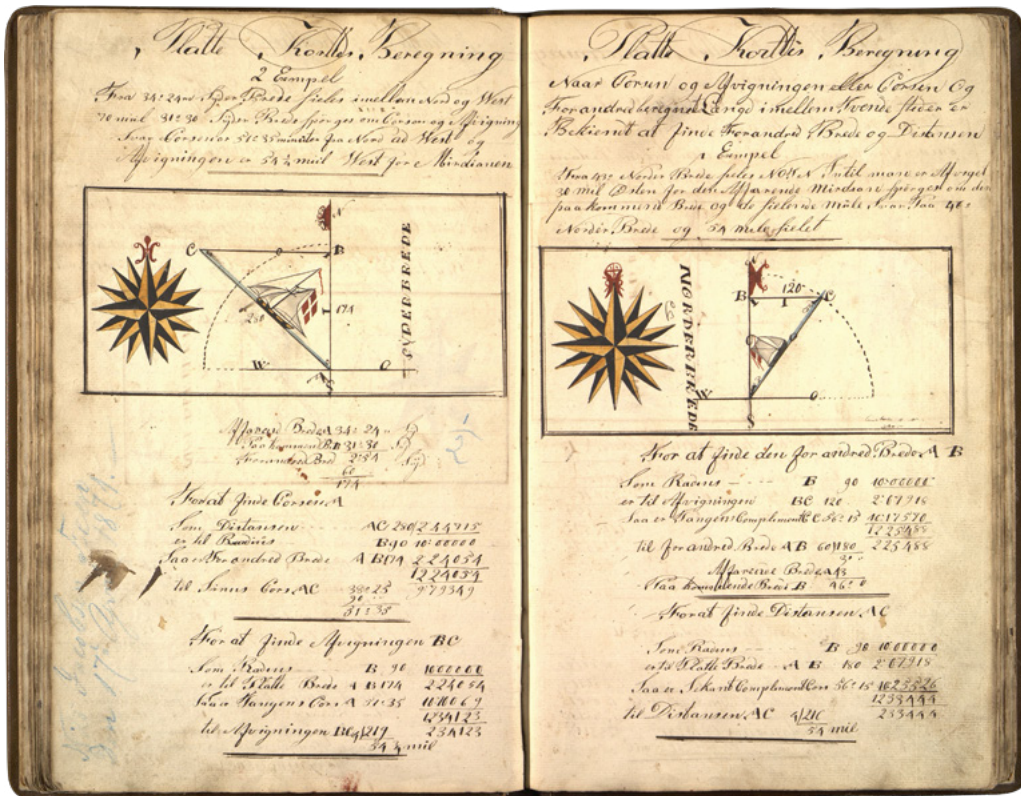 Platte Korttis Beregning
2 Exempel
Fra 34: 24 Syder Brede siles imellem Nord og West
70 miil 31: 30 Syder Brede spörges om Corsen og Afvigning
Svar Corsen er 51: 35 minuter fra Nord ad West og
Afvigningen er 54 ¾ miil West for Mirdianen
N
C
B
174
W
O
A
SYDERBREDE
Affarende Brede A 34: 24
Paakommende B 31: 30
Forandred Bred 2: 54 Syd
60
174
For at finde Corsen A
Som Distansen AC 280 2 44715
er til Radius B 90 10: 00000
Saa er Forandred Brede A B 174 2 24054
12 24054
til Sinus Cors AC 38: 25 9 79349
90
51: 35
For at finde Afvigningen BC
Som Radius B 90 1000000
er til Platte Brede A B 174 2 24054
Saa er Tangens Cors A 51: 35 1010069
1234123
til Afvigningen BC 4/219 234123
54 ¾ mil
Platte Korttis Beregning
Naar Corsen og Afvigningen eller Corsen Og
Forandred beregnet Længde imellem Tvende stæder er
Bekiendt at finde Forandred Brede og Distansen
1 Exempel
Fra 43: Norder Brede siles Intil man er Afveget
30 mil Østen for den Affarende Mirdian spörges om den
paakommende Brede og de silende Mile Svar Paa 46:
Norder Brede og 54 mile silet
NORDERBREDE
B
120
C
W
O
S
For at finde den forandred Brede A B
Som Radius B 90 10: 00000
er til Afvigningen BC 120 2: 07918
Saa er Tangens Complement C 56: 15 10: 17510
12 25488
til forandred Brede AB 60/180 2 25488
3:
Affarende Brede A 43
Paa kommende Brede B 46: 0
For at finde Distansen AC
Som Radius B 90 10 00000
er til Platte Brede A B 180 2: 07918
Saa er Sekant Complement Cors 56: 15 10 25526
1233444
til Distansen AC 4/216 233444
54 mil